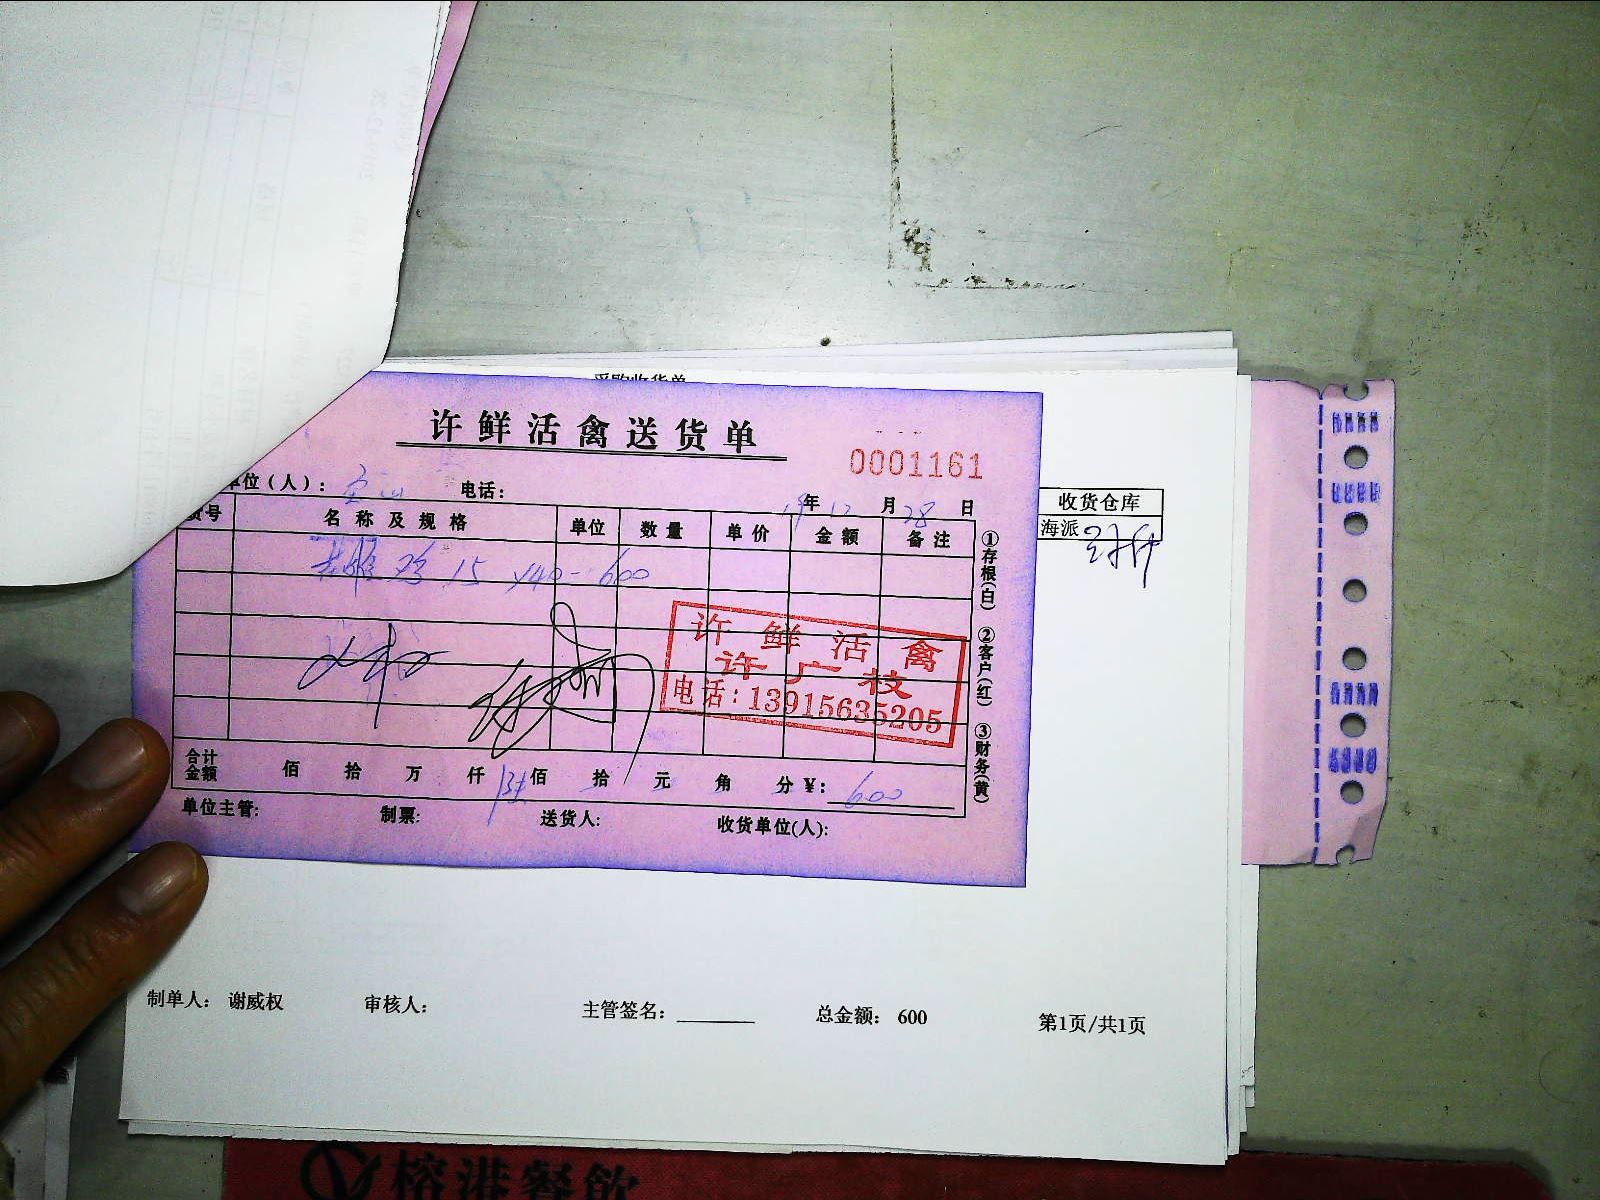 许鲜活禽送货单
0001161
单位(人): 电话:
19年12月28日
货号 名称及规格 单位 数量 单价 金额 备注
鸡 15 ×40=600
①存根(白) ②客户(红) ③财务(黄)
许鲜活禽
许广枝
电话:13915635205
合计金额 佰 拾 万 仟 陆佰 拾 元 角 分 ¥: 600
单位主管: 制票: 送货人: 收货单位(人):
收货仓库
海派
制单人: 谢威权 审核人: 主管签名: 总金额: 600 第1页/共1页
榕港餐饮